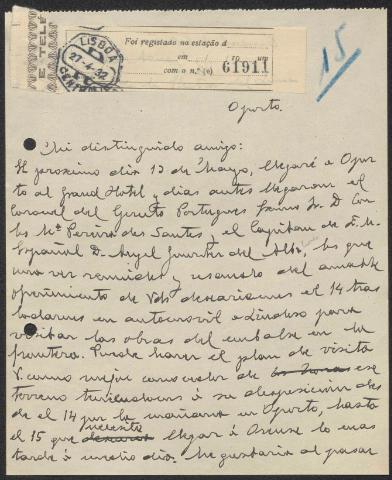 E TELÉ
LISBOA
27-4-32
CENTRAL
Foi registado na estação d
em
com o n.º (o) 61911
15
Oporto.
Mi distinguido amigo:
El proximo dia 13 de Mayo, llegaré a Opor
to al Grand Hotel y dias antes llegaran el
Coronel del Ejercito Portugues Exmo Sr. D. Car
los Mª Pereira dos Santos y el Capitan de E. M.
Español D. Angel del Alba, los que
una vez reunidos y usando del amable
ofrecimiento de Vds desearíamos el 14 tras
ladarnos en automovil a Lindoso para
visitar las obras del embalse en la
frontera. Puede hacer el plan de visita
V. como mejor conocedor de ese
terreno teniendonos á su disposición des
de el 14 por la mañana en Oporto, hasta
el 15 que necesito llegar á Orense lo mas
tarde á medio dia. Me gustaria al pasar